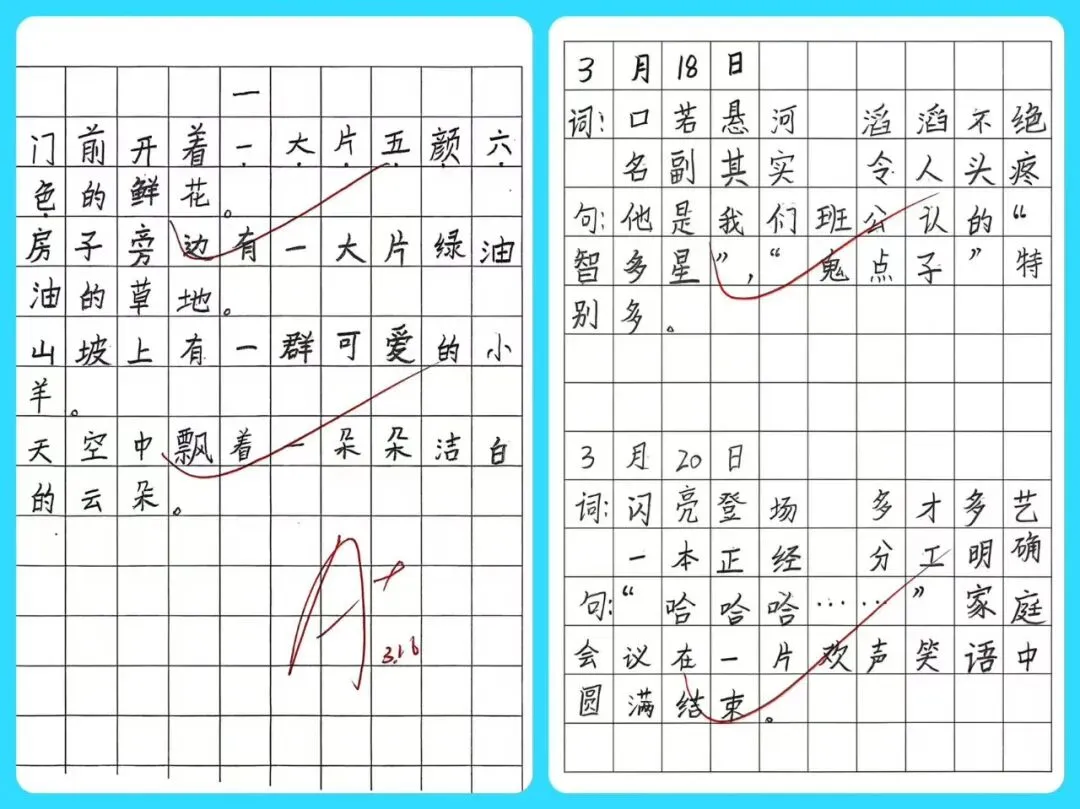 一
门前开着一大片五颜六
色的鲜花。
房子旁边有一大片绿油
油的草地。
山坡上有一群可爱的小
羊。
天空中飘着一朵朵洁白
的云朵。
A+
3.16
3月18日
词:口若悬河 滔滔不绝
名副其实 令人头疼
句:他是我们班公认的“
智多星”,“鬼点子”特
别多。
3月20日
词:闪亮登场 多才多艺
一本正经 分工明确
句:“哈哈哈……”家庭
会议在一片欢声笑语中
圆满结束。